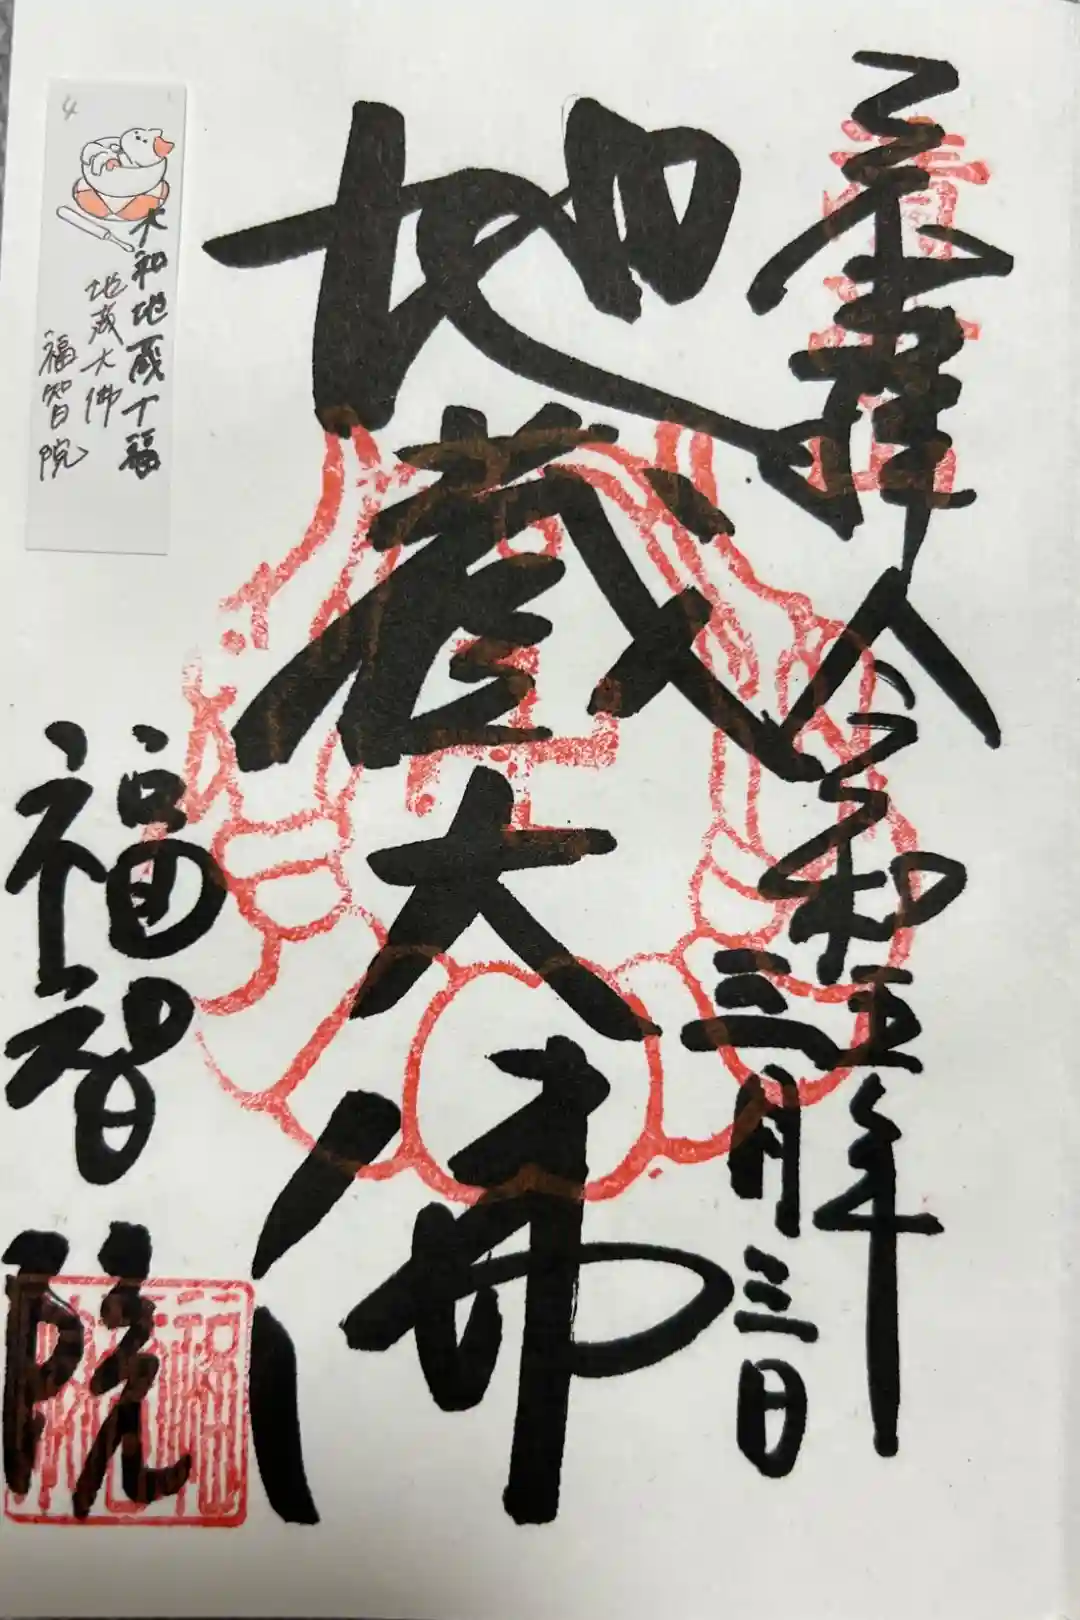 奉拝
令和五年
三月三日
地蔵大佛
福智院
4
大和地蔵十福
地蔵大佛
福智院